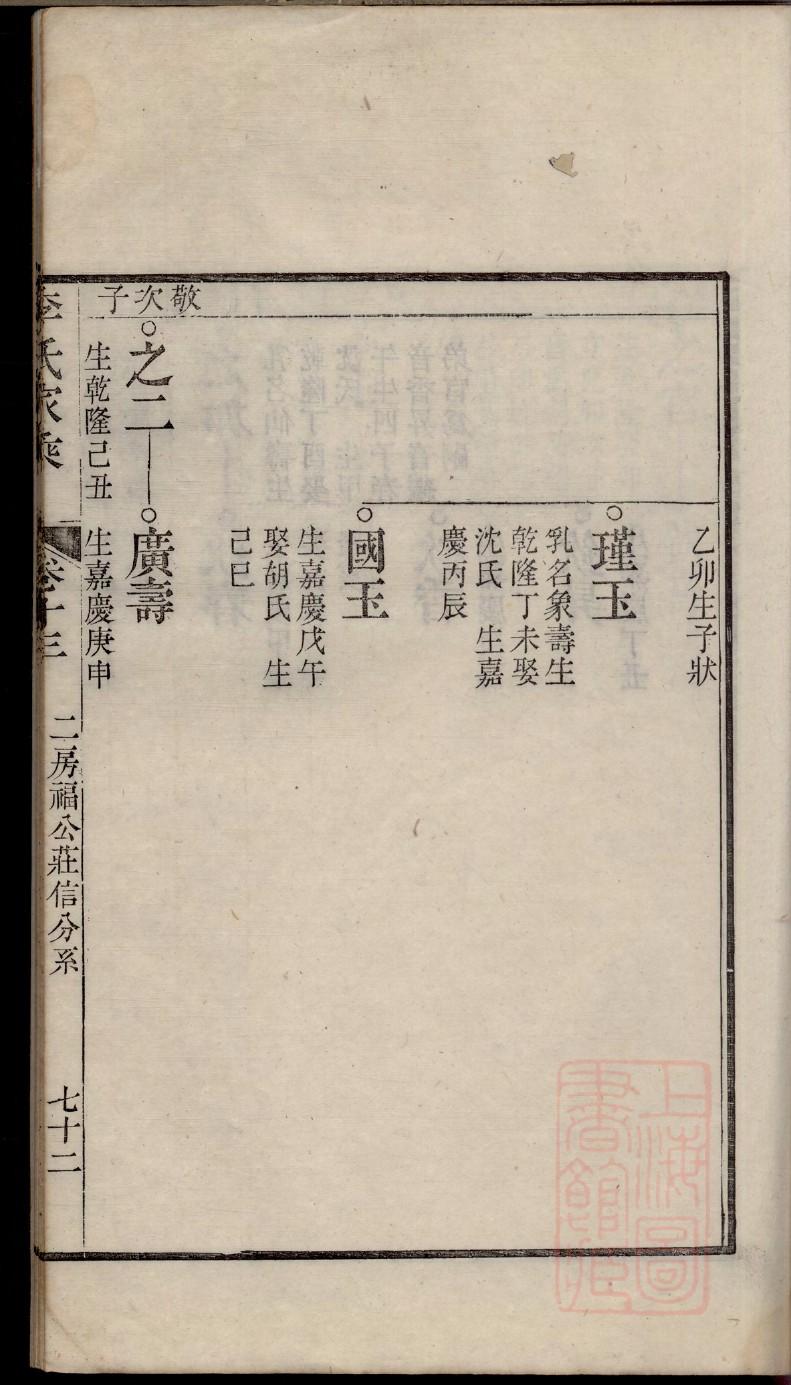 乙卯生子狀
瑾玉
乳名象壽生
乾隆丁未娶
沈氏 生嘉
慶丙辰
國玉
生嘉慶戊午
娶胡氏 生
己巳
敬次子
之二
廣壽
生乾隆己丑
生嘉慶庚申
李氏家乘 卷十三 二房福公莊信分系 七十二
上海圖書館藏